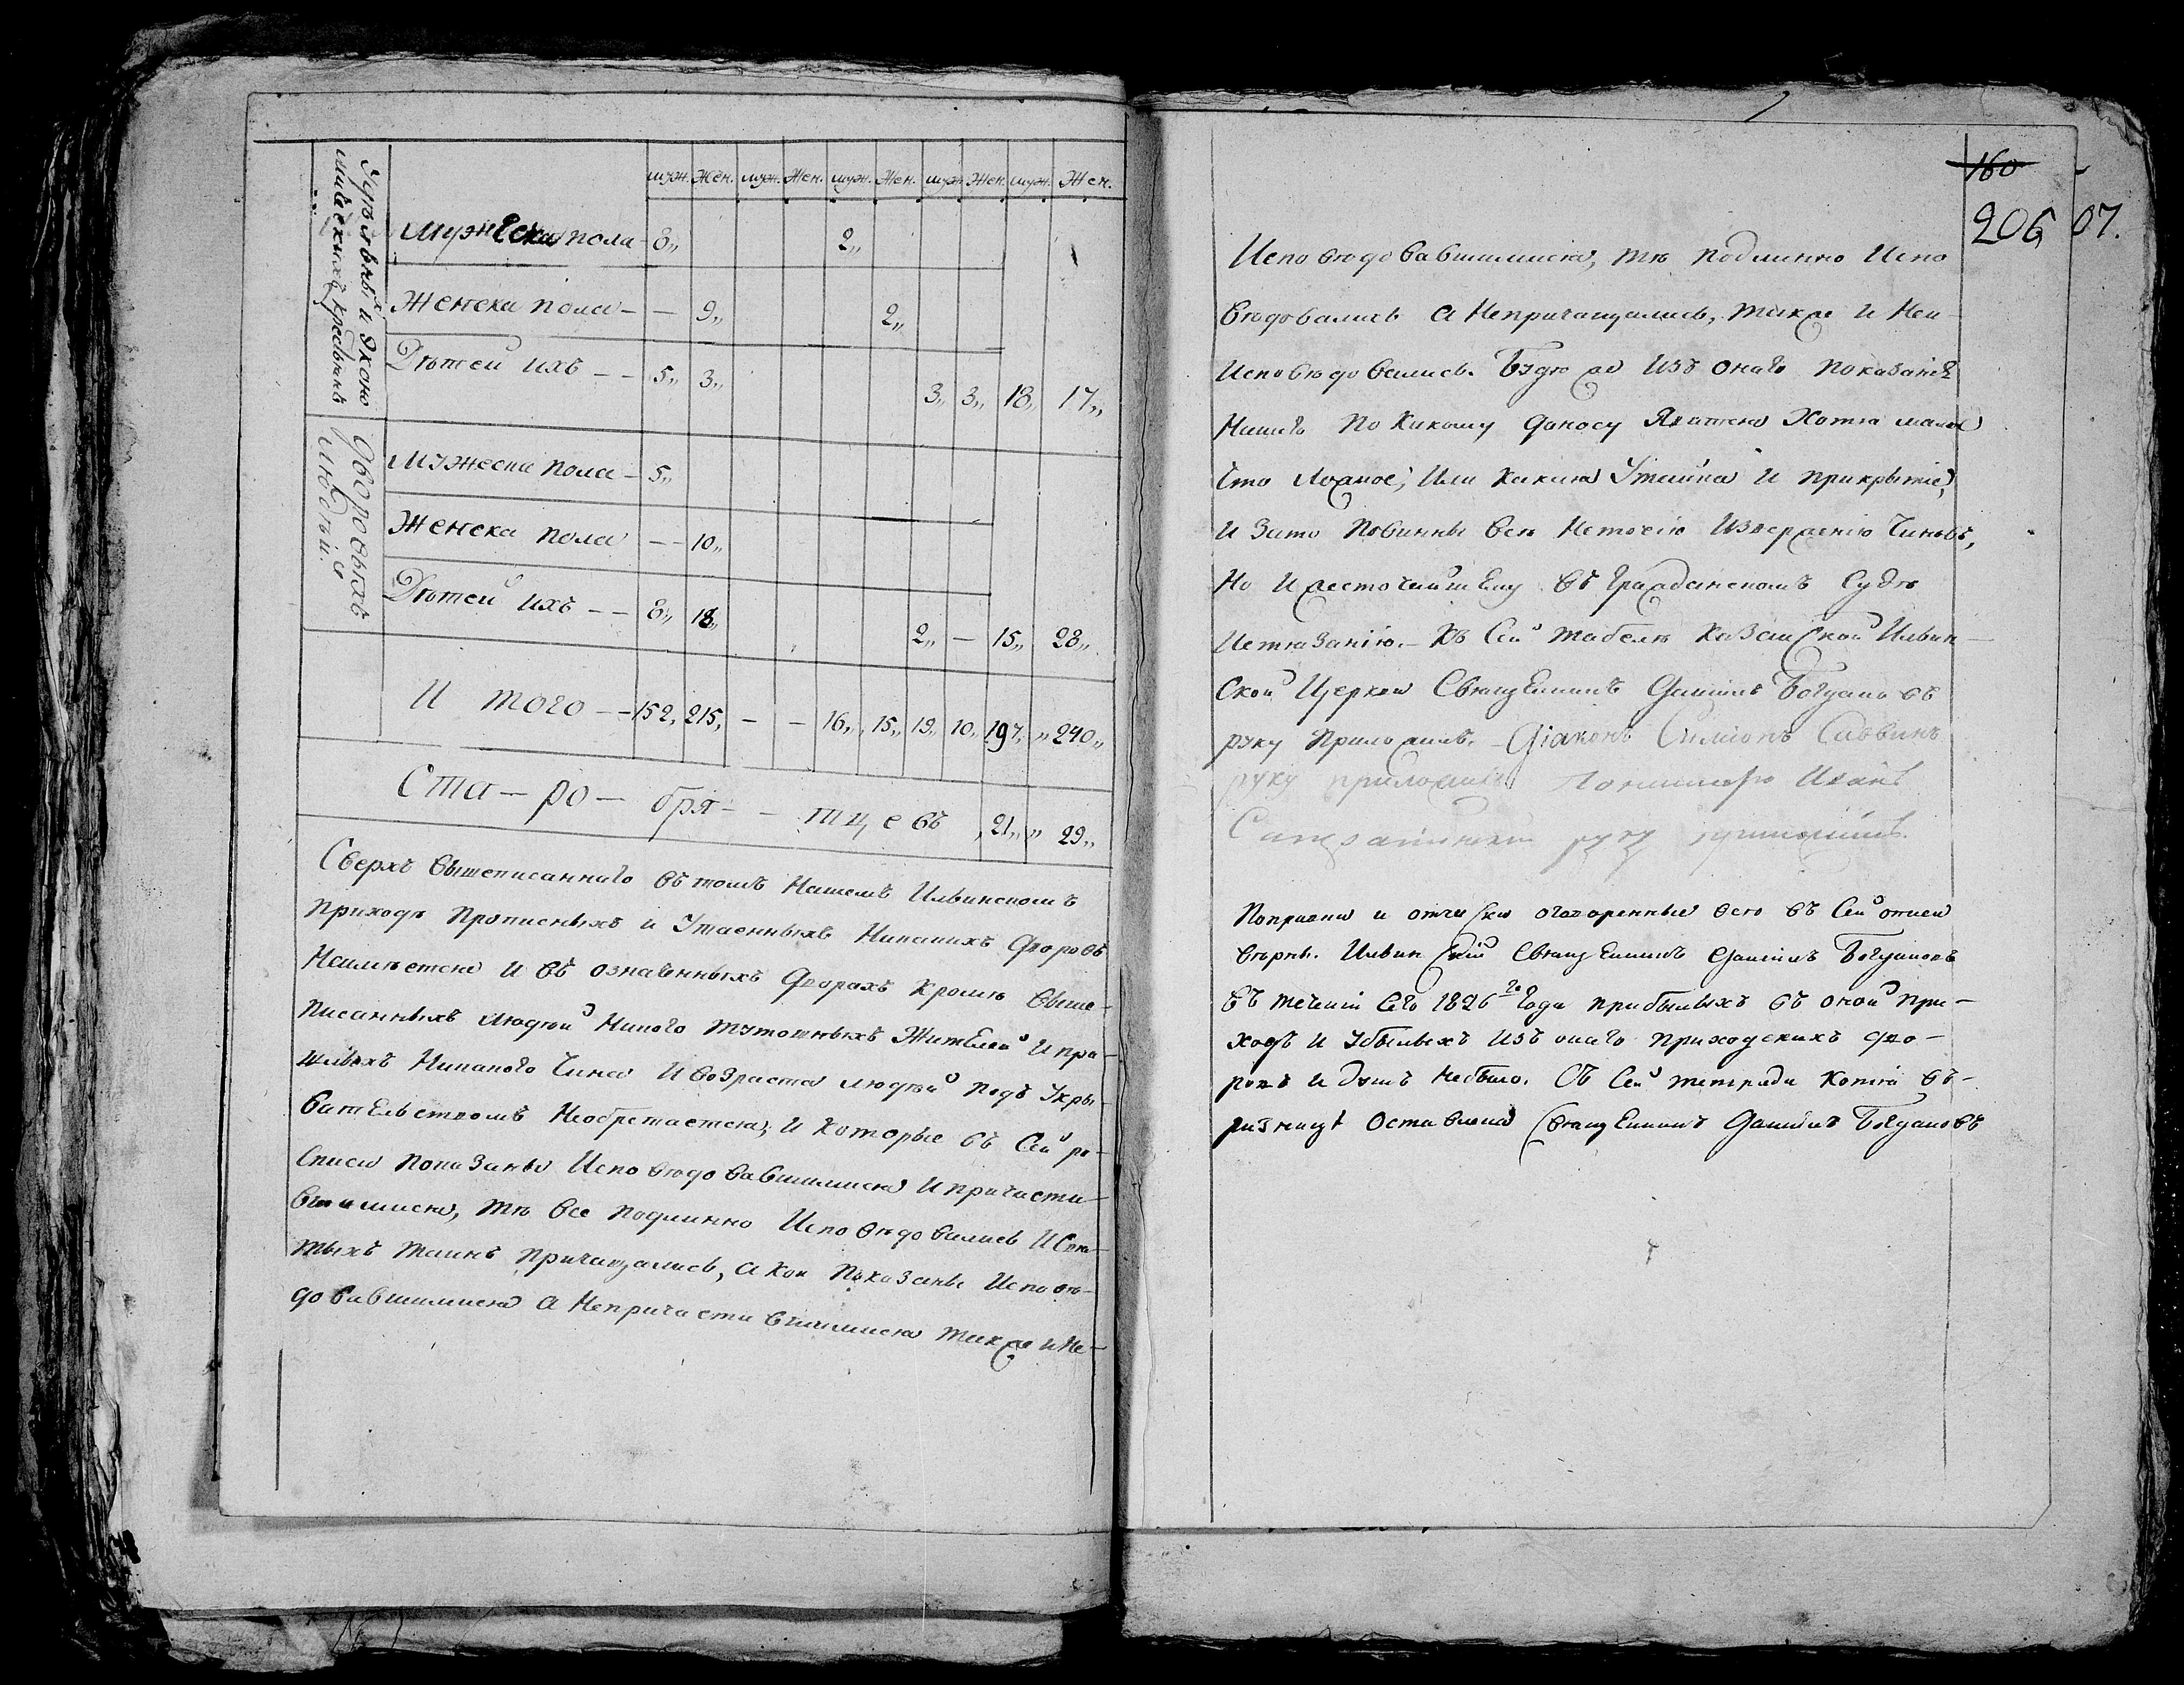 муж. Жен. муж. Жен. муж. Жен. муж. Жен. муж. Жен.
Удѣльныхъ и Эконо
мическихъ крестьянъ
Мужеска пола - 8,, 2,,
Женска пола - - 9,, 2,,
Дѣтей ихъ - - 5,, 3,, 3,, 3,, 18,, 17,,
Дворовыхъ
людей
Мужеска пола - 5,,
Женска пола - - 10,,
Дѣтей ихъ - - 8,, 18,, 2,, - 15,, 28,,
И того - - 152, 215, - - 16,, 15,, 19,, 10,, 197,, 240,,
Ста - ро - обря - - тц е въ 21,, 29,,
Сверхъ вышеписаннаго въ томъ Нашемъ Ильинскомъ
приходѣ прописныхъ и Утаенныхъ Никакихъ Дворовъ
Неимѣется И въ означенныхъ Дворахъ кромѣ выше-
писанныхъ людей Никого тутошныхъ Жителей И при-
шлыхъ Никакого Чина И возраста людей подъ Укры-
вательствомъ Необретается, И которые въ Сей ро-
списи показаны Исповѣдовавшимися И причасти-
вшимися, тѣ все подлинно Исповѣдовались И Свя-
тыхъ таинъ причащались, а кои показаны Исповѣ-
довавшимися а Непричастившимися также и Не-
160
206 07.
Исповѣдовавшимися, тѣ подлинно Испо
вѣдовались а Непричащались, также и Неи
Исповѣдовались. Буде же изъ онаго показанія
Нашего по какому доносу Явится Хотя малое
Что ложное, Или какая Утайка И прикрытіе,
и зато повинны все Неточію Изверженію Чиновъ,
Но и жесточайшему въ гражданскомъ Судѣ
Истязанію. - Къ Сей табелѣ Ильин-
ской Церкви Священникъ Даніилъ Богдановъ
руку приложилъ. - Діаконъ Симіонъ Саввинъ
руку приложилъ Пономарь Иванъ
руку приложилъ.
Поправки и отчистки оговоренные все въ Сей описи
вѣрны. Ильинскій Священникъ Даніилъ Богдановъ
Въ теченіи Сего 1826го Года прибылыхъ въ оной при-
ходъ и Убылыхъ изъ онаго приходскихъ дво-
ровъ и душъ Небыло. Съ Сей тетради копія въ-
ризницѣ Оставлена Священникъ Даніилъ Богдановъ